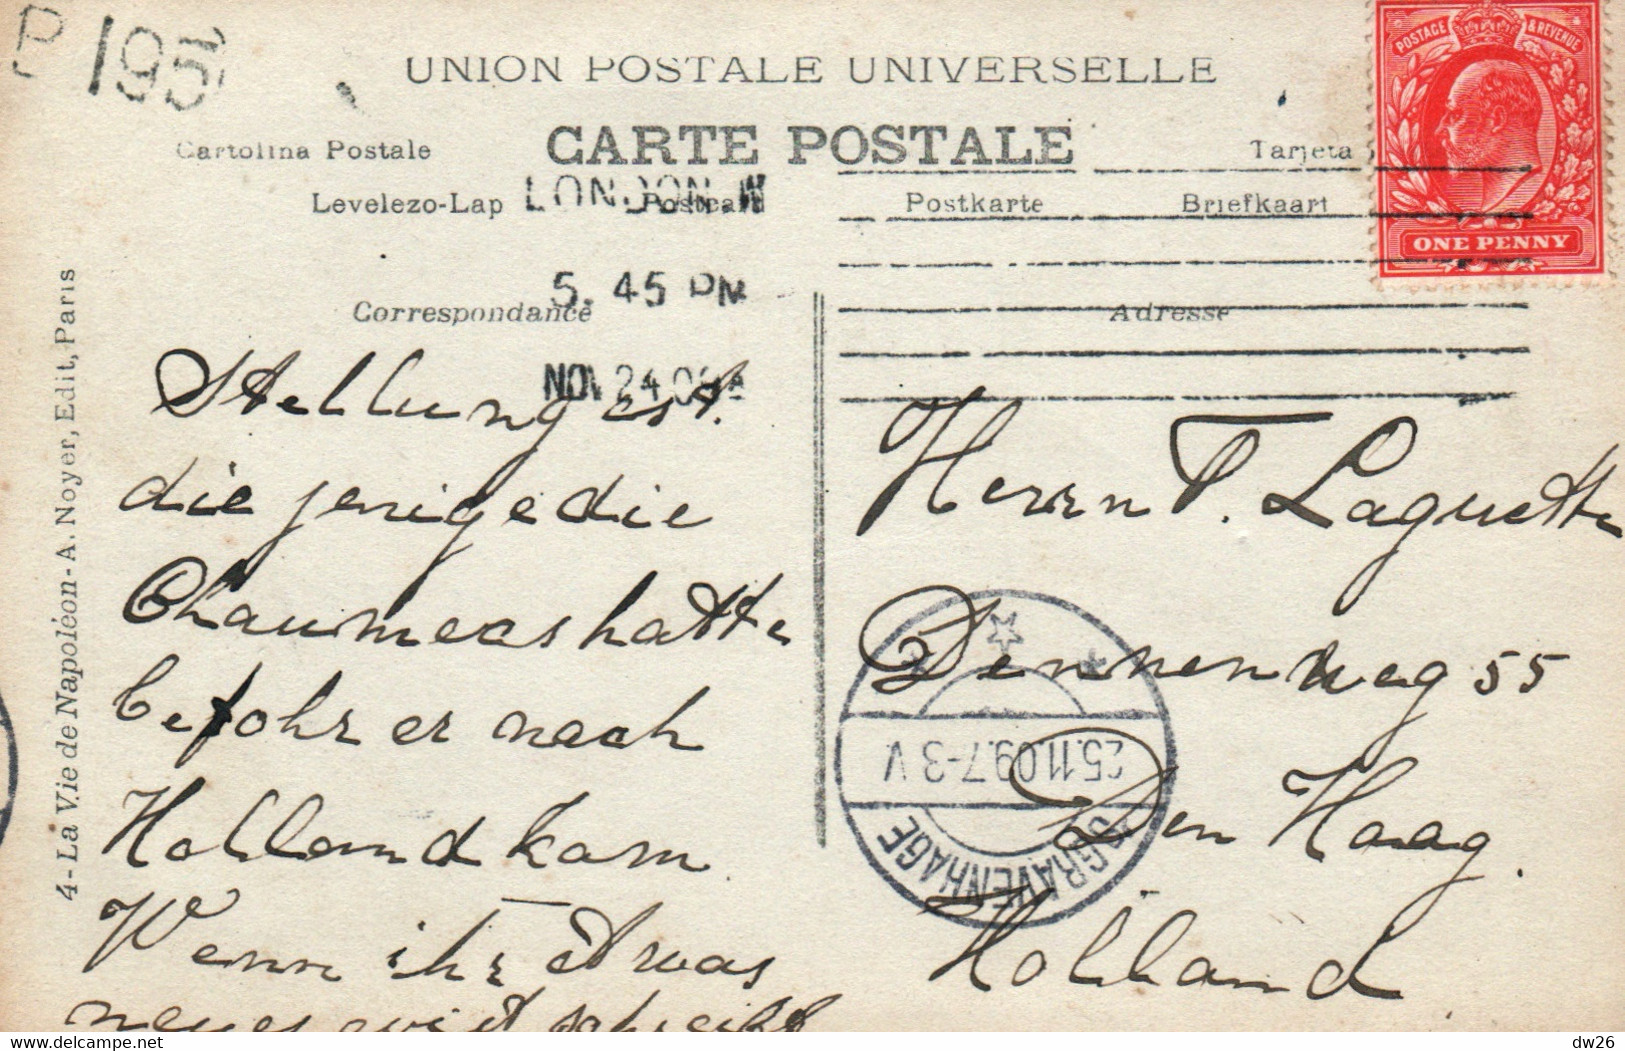 P 195
UNION POSTALE UNIVERSELLE
CARTE POSTALE
Cartolina Postale
Tarjeta
Levelezo-Lap
Postcard
Postkarte
Briefkaart
LONDON. W
5. 45 PM
NOV 24 09
Correspondance
Adresse
POSTAGE & REVENUE
ONE PENNY
4 - La Vie de Napoléon - A. Noyer, Edit, Paris
Stellung ist
die jenige die
Chaumees hatte
befohr er nach
Holland kam.
Wenn ihr etwas
neues wist schreibt
Herrn T. Laguette
Dennenweg 55
Den Haag.
Holland
'S GRAVENHAGE
25.11.09.7-3 V.
delcampe.net
dw26